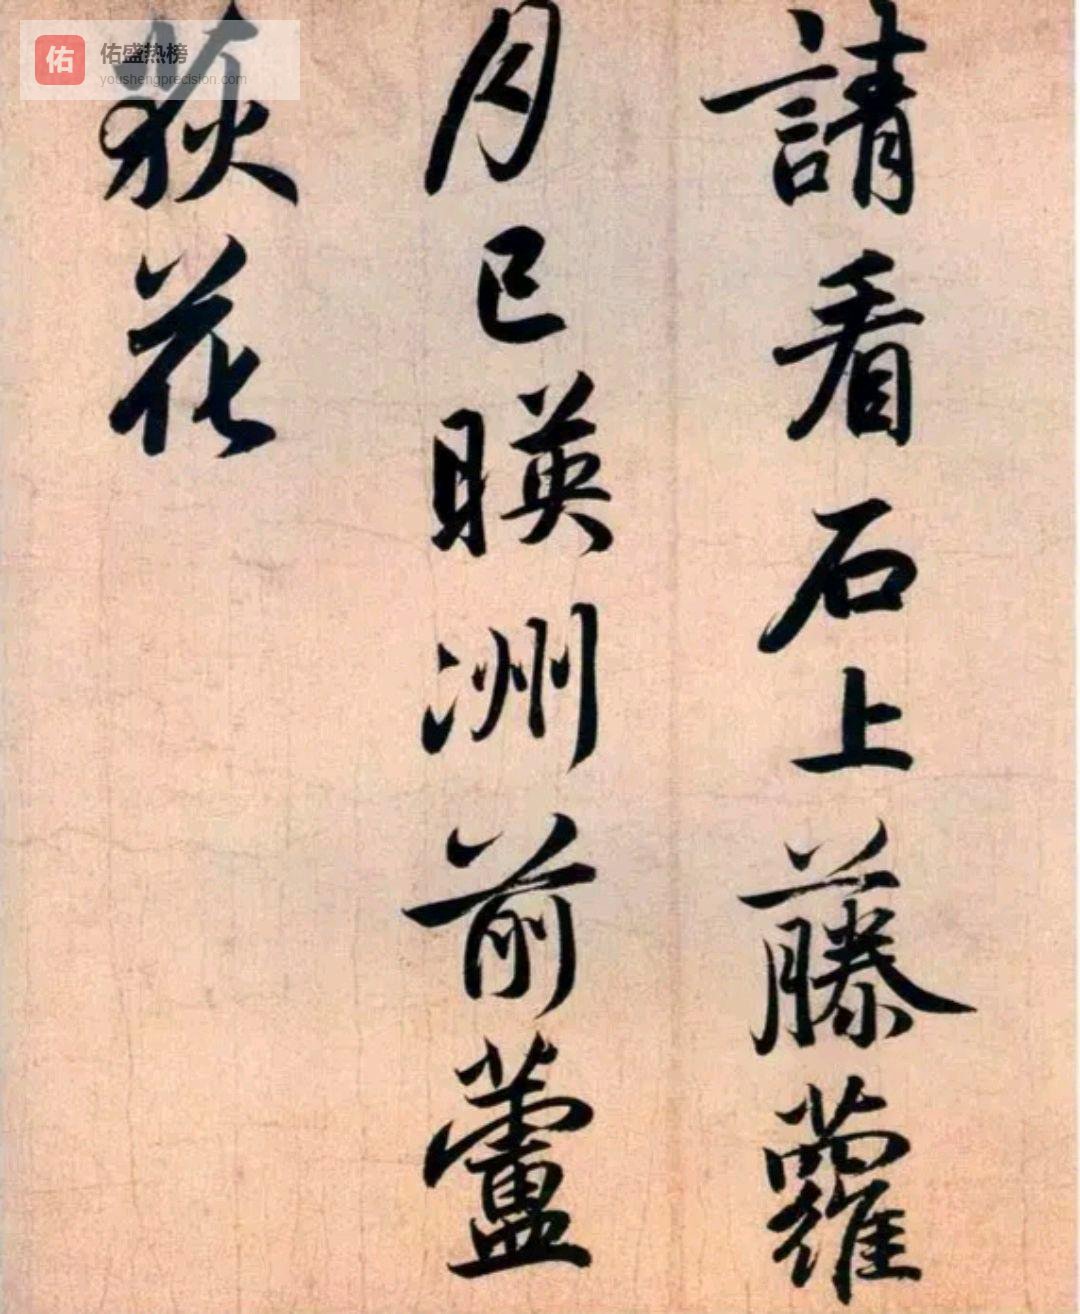 請看石上藤蘿
月已暎洲前蘆
荻花
佑
佑盛热榜
youshengprecision.com